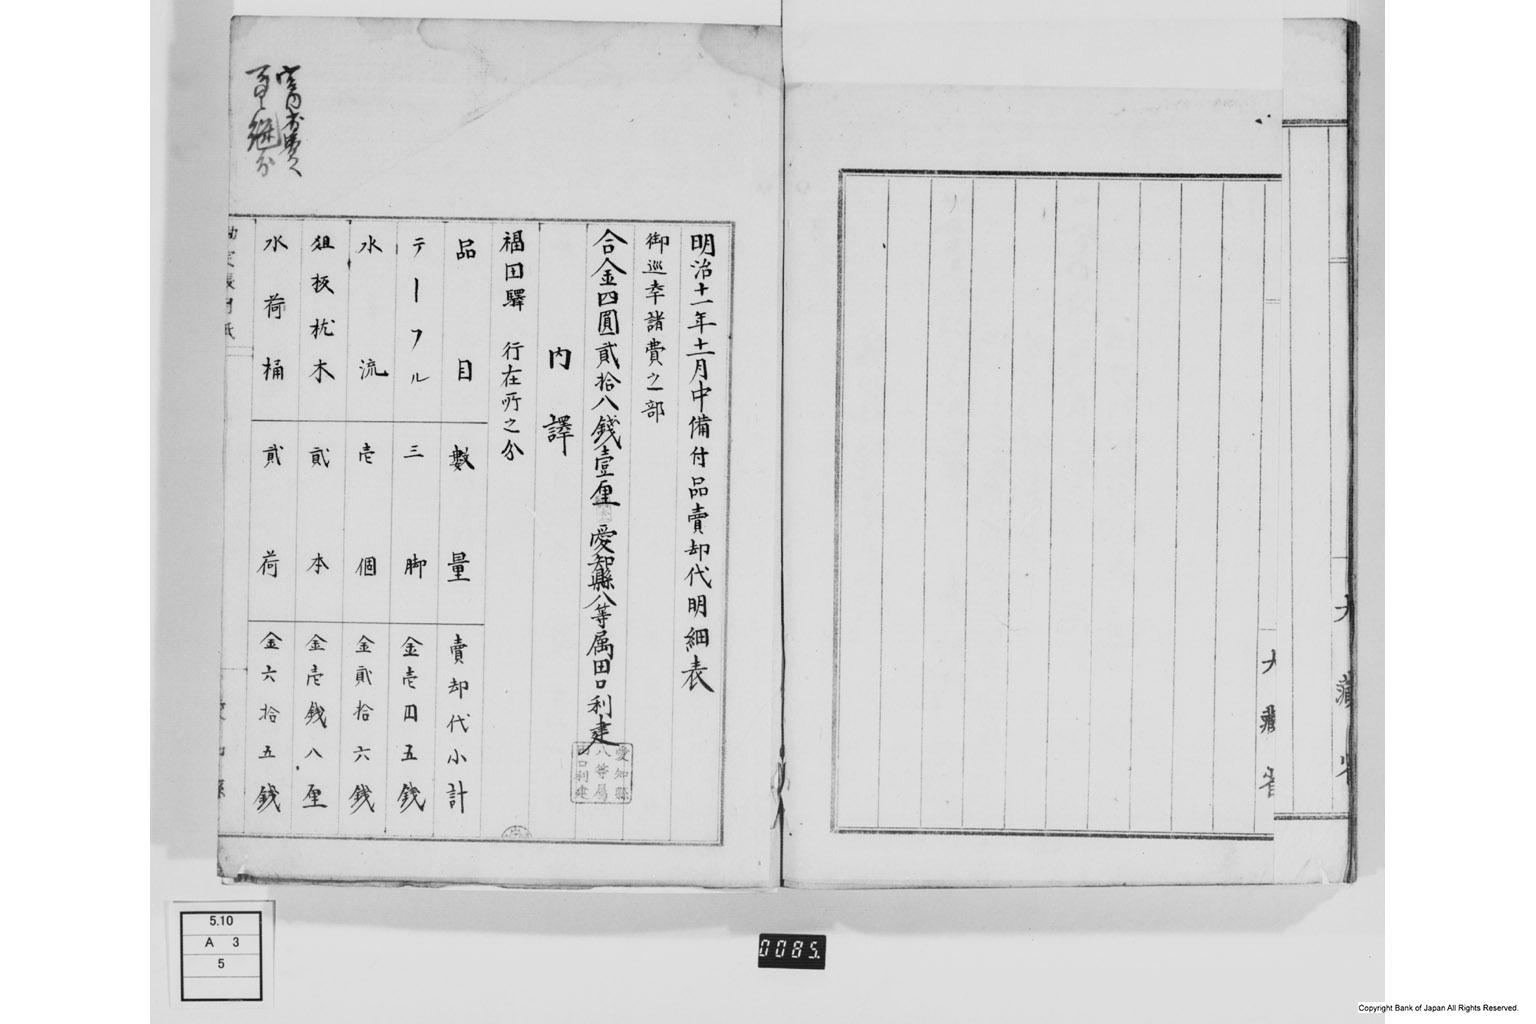 大藏省
大藏省
明治十一年十二月中備付品賣却代明細表
御巡幸諸費之部
合金四圓貳拾八錢壹厘 愛知縣八等属田口利建
愛知縣
八等属
田口利建
内譯
福田驛 行在所之分
品目 數量 賣却代小計
テーフル 三脚 金壱円五錢
水流 壱個 金貳拾六錢
俎板枕木 貳本 金壱錢八厘
水荷桶 貳荷 金六拾五錢
5.10
A 3
5
0085.
Copyright Bank of Japan All Rights Reserved.